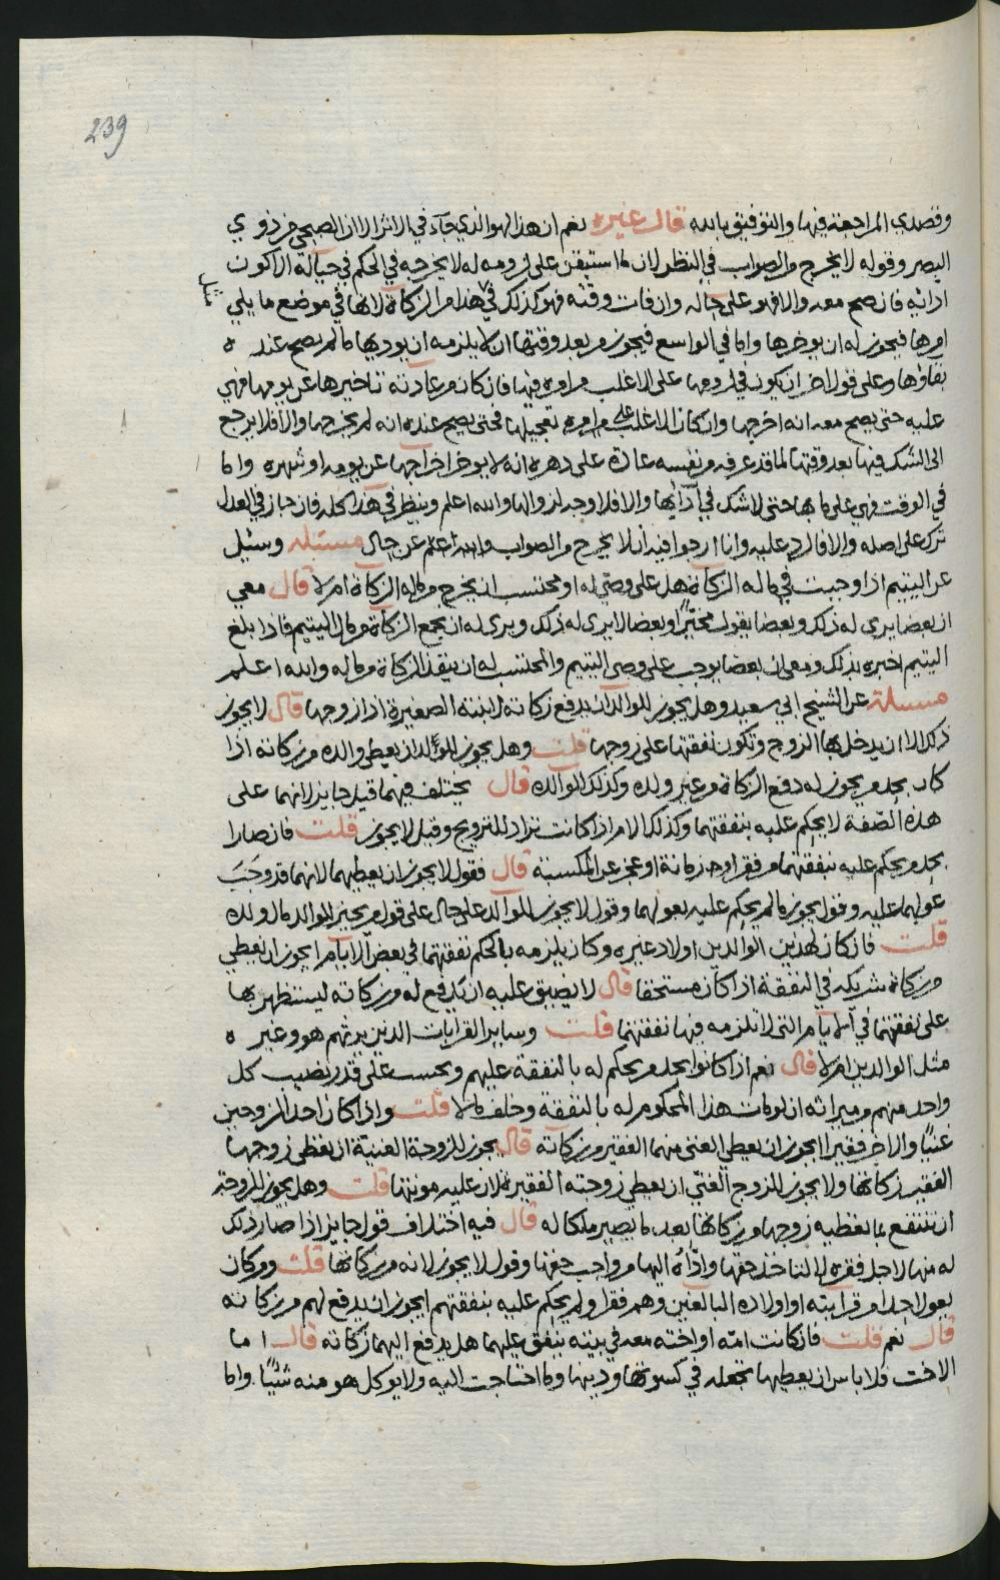 239
وقصدي المراجعة فيها والتوفيق بالله قال غيره نعم ان هذا لهو الذي جآء في الاثر الا ان الصبحي من ذوي
البصر وقوله لا يخرج من الصواب في النظر لان ما استيقن على لزومه له لا يخرجه في الحكم في حياله الا كون
ادائه فان صح معه والا فهو على حاله وان فات وقته فهو كذلك في هذا من الزكاة لانها في موضع ما يلي
امرها فيجوز له ان يوخرها واما في الواسع فيجوز من بعد وقتها ان لا يلزمه ان يوديها ما لم يصح عنده
بقاؤها وعلى قول اخر ان يكون في لزومها على الاغلب من اموره فيها فان كان من عادته تاخيرها عن يومها فهي
عليه حتى يصح معه انه اخرجها وان كان الاغلب على من اموره تعجيلها فحتى يصح عنده انه لم يخرجها والا فلا يرجع
الى الشك فيها بعد وقتها لما قد عرفه من نفسه عادة على دهره انه لا يوخر اخراجها عن يومه او شهره واما
في الوقت فهي على ما بها حتى لا شك في ادآيها والا فلا وجه لزوالها والله اعلم وينظر في هذا كله فان جاز في العدل
ترك على اصله والا فالرد عليه وانا ارجو فيه ان لا يخرج من الصواب والله اعلم عن حال مسئلة وسئل
عن اليتيم اذا وجبت في ماله الزكاة هل على وصي له او محتسب ان يخرج من ماله الزكاة ام لا قال معي
ان بعضا يرى له ذلك وبعضا يقول مخيّرا وبعضا لا يرى له ذلك ويرى له ان يجمع الزكاة من مال اليتيم فاذا بلغ
اليتيم اخبره بذلك ومعي ان بعضا يوجب على وصي اليتيم والمحتسب له ان ينفذ الزكاة من ماله والله اعلم
مسئلة عن الشيخ ابي سعيد وهل يجوز للوالد ان يدفع زكاته لابنته الصغيرة اذا زوجها قال لا يجوز
ذلك الا ان يدخل بها الزوج وتكون نفقتها على زوجها قلت وهل يجوز للولد ان يعطي والده من زكاته اذا
كان بحد من يجوز له دفع الزكاة من غير ولده وكذلك الوالدة قال يختلف فيهما قيل جايز لانهما على
هذه الصفة لا يحكم عليه بنفقتهما وكذلك الام اذا كانت تراد للتزويج وقيل لا يجوز قلت فان صارا
بحد من يحكم عليه بنفقتهما من فقر او من زمانة او عجز عن المكسبة قال فقول لا يجوز ان يعطيهما لانهما قد وجب
عولهما عليه وقول يجوز ما لم يحكم عليه بعولهما وقول لا يجوز للوالد على حال على قول من يجيز للوالد مال ولده
قلت فان كان لهذين الوالدين اولاد غيره وكان يلزمه بالحكم نفقتهما في بعض الايام ايجوز ان يعطي
من زكاته شريكه في النفقة اذا كان مستحقا قال لا يضيق عليه ان يدفع له من زكاته ليستظهر بها
على نفقتهما في الايام التي لا تلزمه فيها نفقتهما قلت وساير القرابات الذين يرثهم هو وغيره
مثل الوالدين ام لا قال نعم اذا كانوا بحد من يحكم له بالنفقة عليهم ويحسب على قدر نصيب كل
واحد منهم من ميراثه ان لو مات هذا المحكوم له بالنفقة وخلف مالا قلت واذا كان احد الزوجين
غنيّا والاخر فقيرا ايجوز ان يعطي الغني منهما الفقير من زكاته قال يجوز للزوجة الغنيّة ان تعطي زوجها
الفقير زكاتها ولا يجوز للزوج الغنيّ ان يعطي زوجته الفقيرة لان عليه مونتها قلت وهل يجوز للزوجة
ان تنتفع بما تعطيه زوجها من زكاتها بعد ما يصير ملكا له قال فيه اختلاف قول جايز اذا صار ذلك
له منها لاجل فقره لا لتاخذ حقها واذاه اليها من واجب حقها وقول لا يجوز لانه من زكاتها قلت ومن كان
يعول احدا من قرابته او اولاده البالغين وهم فقرا ولم يحكم عليه بنفقتهم ايجوز ان يدفع لهم من زكاته
قال نعم قلت فان كانت امّه او اخته معه في بيته ينفق عليهما هل يدفع اليهما زكاته قال اما
الاخت فلا باس ان يعطيها تجعله في كسوتها ودينها وما احتاجت اليه ولا يوكل هو منه شئيًا واما